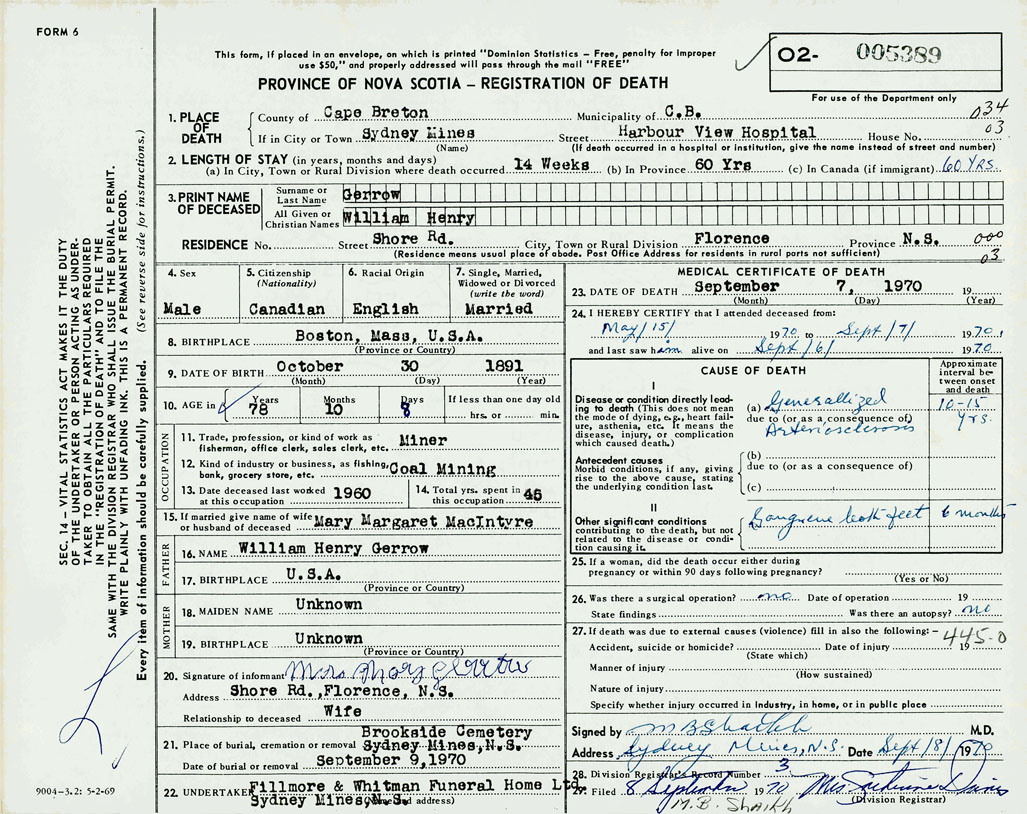 FORM 6
This form, if placed in an envelope, on which is printed "Dominion Statistics – Free, penalty for improper
use $50," and properly addressed will pass through the mail "FREE"
02- 005389
PROVINCE OF NOVA SCOTIA – REGISTRATION OF DEATH
For use of the Department only
1. PLACE OF DEATH County of Cape Breton Municipality of C.B. 034
If in City or Town Sydney Mines Street Harbour View Hospital House No. 03
(Name) (If death occurred in a hospital or institution, give the name instead of street and number)
2. LENGTH OF STAY (in years, months and days)
(a) In City, Town or Rural Division where death occurred 14 Weeks (b) In Province 60 Yrs (c) In Canada (if immigrant) 60 YRS.
3. PRINT NAME OF DECEASED Surname or Last Name Gerrow
All Given or Christian Names William Henry
RESIDENCE No. Street Shore Rd. City, Town or Rural Division Florence Province N.S. 000
(Residence means usual place of abode. Post Office Address for residents in rural parts not sufficient) 03
4. Sex 5. Citizenship (Nationality) 6. Racial Origin 7. Single, Married, Widowed or Divorced (write the word)
Male Canadian English Married
8. BIRTHPLACE Boston, Mass, U.S.A.
(Province or Country)
9. DATE OF BIRTH October 30 1891
(Month) (Day) (Year)
10. AGE in Years Months Days If less than one day old
78 10 8 hrs. or min.
OCCUPATION
11. Trade, profession, or kind of work as Miner
fisherman, office clerk, sales clerk, etc.
12. Kind of industry or business, as fishing, Coal Mining
bank, grocery store, etc.
13. Date deceased last worked 1960 14. Total yrs. spent in 45
at this occupation this occupation
15. If married give name of wife Mary Margaret MacIntyre
or husband of deceased
FATHER
16. NAME William Henry Gerrow
17. BIRTHPLACE U.S.A.
(Province or Country)
MOTHER
18. MAIDEN NAME Unknown
19. BIRTHPLACE Unknown
(Province or Country)
20. Signature of informant Mrs Mary Gerrow
Address Shore Rd., Florence, N.S.
Relationship to deceased Wife
Brookside Cemetery
21. Place of burial, cremation or removal Sydney Mines, N.S.
Date of burial or removal September 9, 1970
22. UNDERTAKER Fillmore & Whitman Funeral Home Ltd.
Sydney Mines, N.S. (Name and address)
MEDICAL CERTIFICATE OF DEATH
23. DATE OF DEATH September 7, 1970 19
(Month) (Day) (Year)
24. I HEREBY CERTIFY that I attended deceased from:
May/15/ 1970 to Sept/7/ 1970,
and last saw him alive on Sept/6/ 1970
CAUSE OF DEATH
Approximate interval between onset and death
I
Disease or condition directly leading to death (This does not mean the mode of dying, e.g., heart failure, asthenia, etc. It means the disease, injury, or complication which caused death.)
(a) Generallized 10-15
due to (or as a consequence of) yrs.
Arteriosclerosis
Antecedent causes
Morbid conditions, if any, giving rise to the above cause, stating the underlying condition last.
(b)
due to (or as a consequence of)
(c)
II
Other significant conditions
contributing to the death, but not related to the disease or condition causing it.
Gangrene both feet 6 months
25. If a woman, did the death occur either during
pregnancy or within 90 days following pregnancy?
(Yes or No)
26. Was there a surgical operation? no Date of operation 19
State findings Was there an autopsy? no
27. If death was due to external causes (violence) fill in also the following: – 445.0
Accident, suicide or homicide? Date of injury 19
(State which)
Manner of injury
(How sustained)
Nature of injury
Specify whether injury occurred in Industry, in home, or in public place
Signed by M B Shaikh M.D.
Address Sydney Mines, N.S. Date Sept/8/1970
28. Division Registrar's Record Number 3
29. Filed 8 September 1970 Mrs
M. B. Shaikh (Division Registrar)
SEC. 14 – VITAL STATISTICS ACT MAKES IT THE DUTY
OF THE UNDERTAKER OR PERSON ACTING AS UNDER-
TAKER TO OBTAIN ALL THE PARTICULARS REQUIRED
IN THE "REGISTRATION OF DEATH" AND TO FILE THE
SAME WITH THE DIVISION REGISTRAR WHO SHALL ISSUE THE BURIAL PERMIT.
WRITE PLAINLY WITH UNFADING INK. THIS IS A PERMANENT RECORD.
Every item of information should be carefully supplied. (See reverse side for instructions.)
9004-3.2: 5-2-69